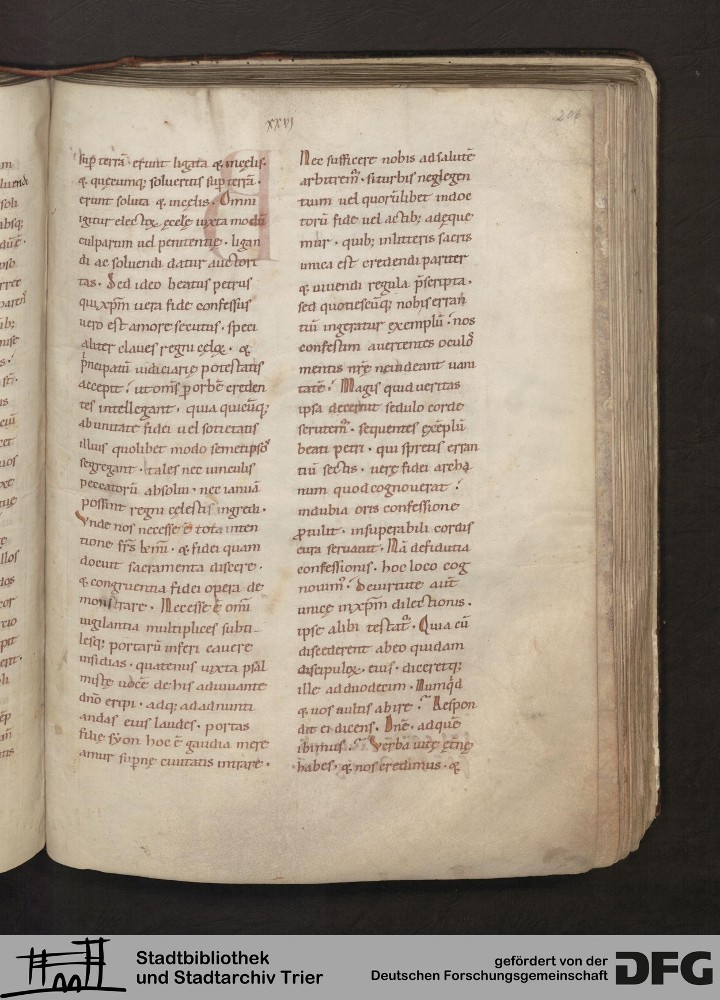 xxvi
206
sup̄ terrā · erunt ligata & incęlis ·
& quęcumq; solueritis sup̄ terrā ·
erunt soluta & incęlis · Omni
igitur electoꝝ ęcclę iuxta modū
culparum uel penitentię · ligan
di ac soluendi datur auctori
tas · Sed ideo beatus petrus
qui xp̄m uera fide confessus
uero est amore secutus · speci
aliter claues regni cęloꝝ · &
p̄ncipatū iudiciarię potestatis
accepit · ut om̄s ꝑ orbē creden
tes intellegant · quia quicūq;
ab unitate fidei uel societatis
illius quolibet modo semetipsos̄
segregant · tales nec uinculis
peccatorū absolui · nec ianuā
possint regni cęlestis ingredi ·
Vnde nos necesse ē tota inten
tione frs̄ kmī · & fidei quam
docuit sacramenta discere ·
& congruentia fidei opera de
monstrare · Necesse ē omī
uigilantia multiplices subti
lesq; portarū inferi cauere
insidias · quatenus iuxta psal
mistę uocē de his adiuuante
dn̄o eripi · adq; ad adnunti
andas eius laudes · portas
filię syon hoc ē gaudia mere
amur sup̄nę ciuitatis intrare ·
Nec sufficere nobis ad salutē
arbitrem² · si turbis neglegen
tium uel quorūlibet indoc
torū fide uel actib; adęque
mur · quib; inlitteris sacris
unica est credendi pariter
& uiuendi regula p̄scripta ·
sed quotiescūq; nobis erran
tiū ingeratur exemplū · nos
confestim auertentes oculos̄
mentis nrē ne uideant uani
tatē · Magis quid ueritas
ipsa decernit sedulo corde
scrutem² · sequentes exēplū
beati petri · qui spretis erran
tiū sectis · uerę fidei archa
num quod cognouerat ·
indubia oris confessione
ꝓtulit · insuperabili cordis
cura seruauit · Nā de fidutia
confessionis · hoc loco cog
nouim² · De uirtute aut̄
unicę in xp̄m dilectionis ·
ipse alibi testat² · Quia cū
discederent ab eo quidam
discipuloꝝ eius · diceretq;
ille ad duodecim · Numq̇d
& uos uultis abire · Respon
dit ei dicens · Dnē · ad quē
ibimus · Verba uitę ętnę
habes · & nos credimus · &
Stadtbibliothek
und Stadtarchiv Trier
gefördert von der
Deutschen Forschungsgemeinschaft
DFG